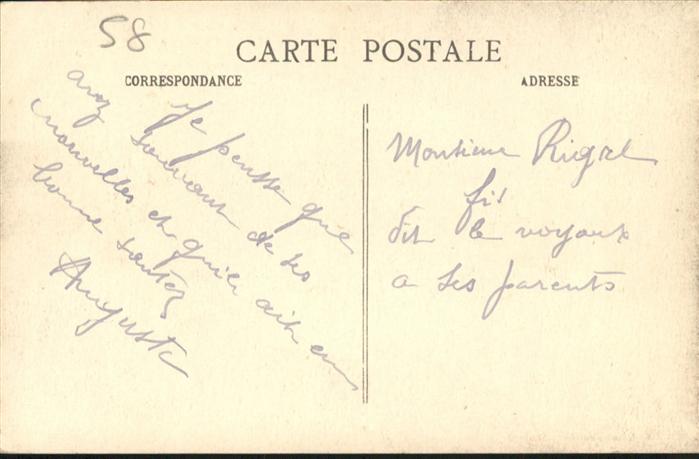 58
CARTE POSTALE
CORRESPONDANCE
ADRESSE
Je pensse que
avez souvant de ses
nouvelles et qu'il ait en
bonne santez
Auguste
Monsieur Rigal
fis
dit le voyaux
a ses parents